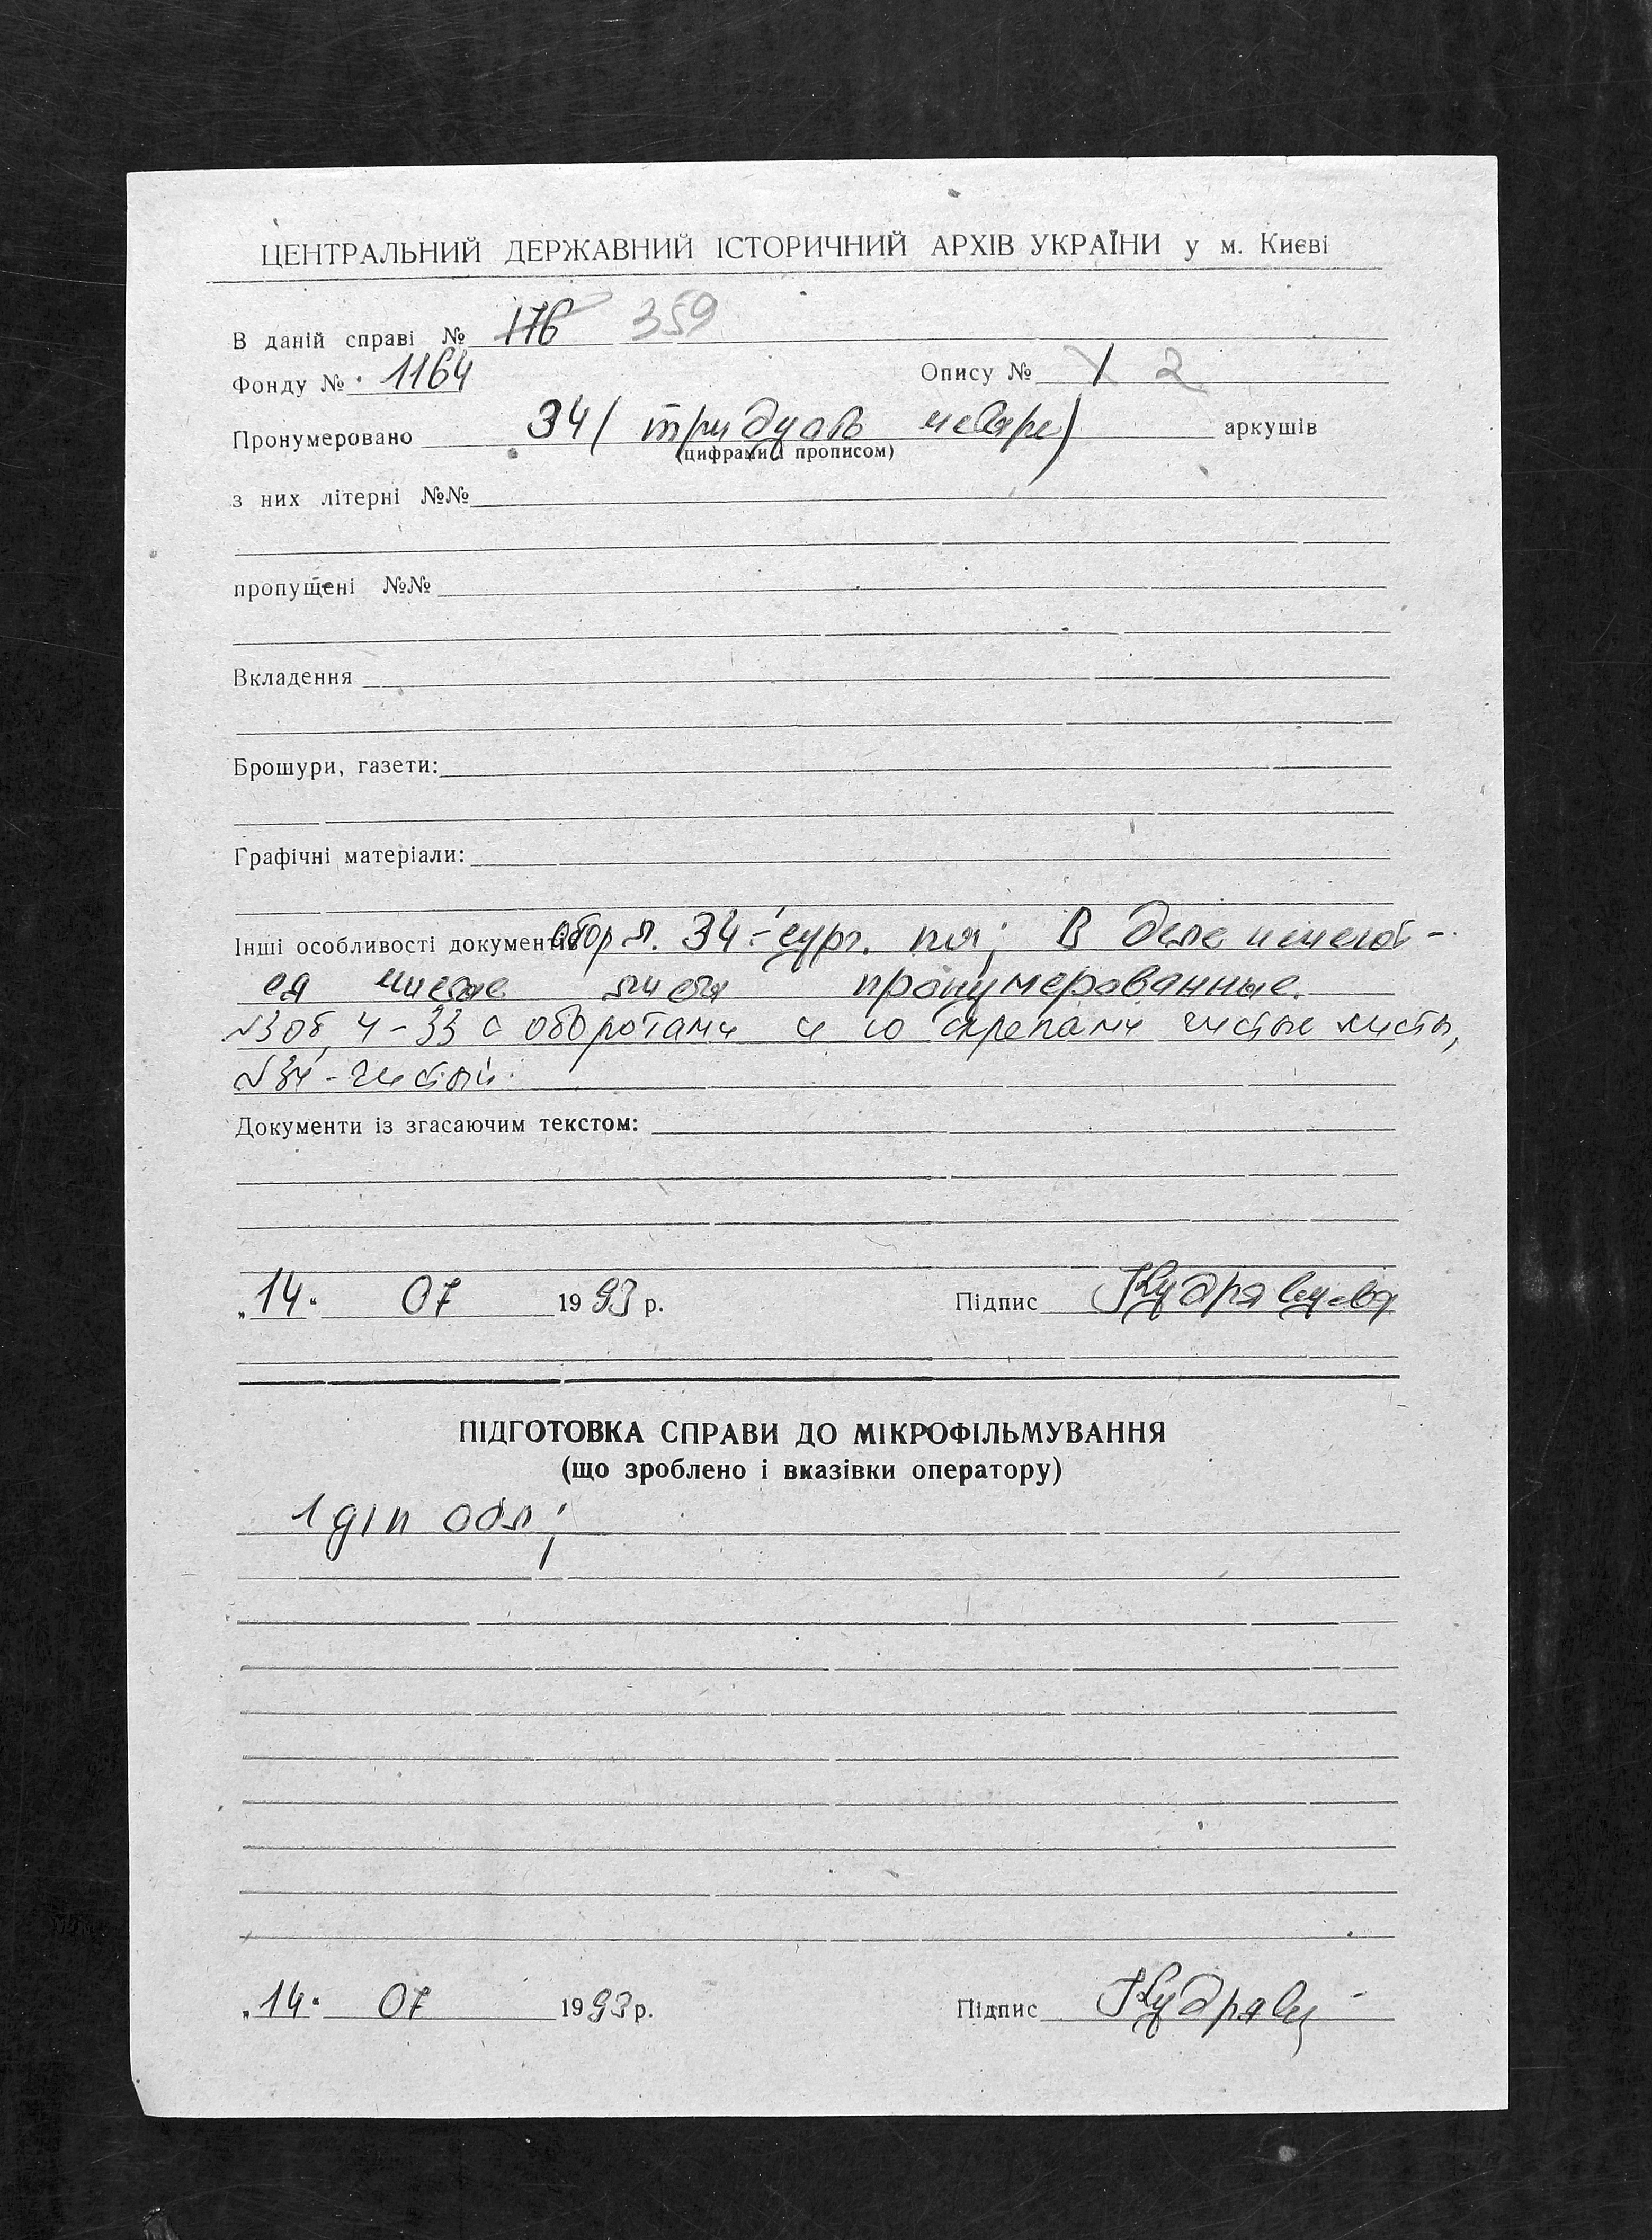 ЦЕНТРАЛЬНИЙ ДЕРЖАВНИЙ ІСТОРИЧНИЙ АРХІВ УКРАЇНИ у м. Києві
В даній справі № 176 359
Фонду № 1164 Опису № 1 2
Пронумеровано 34 ( тридцать четыре) аркушів
(цифрами і прописом)
з них літерні №№
пропущені №№
Вкладення
Брошури, газети:
Графічні матеріали:
Інші особливості документів обор л. 34 - сург. печ; В деле имеют-
ся чистые листы пронумерованные.
№3 об, 4-33 с оборотами и со скрепами чистые листы,
№34 - чистый.
Документи із згасаючим текстом:
„14" 07 1993 р. Підпис Кудрявцева
ПІДГОТОВКА СПРАВИ ДО МІКРОФІЛЬМУВАННЯ
(що зроблено і вказівки оператору)
1 обл;
„14" 07 1993 р. Підпис Кудрявц